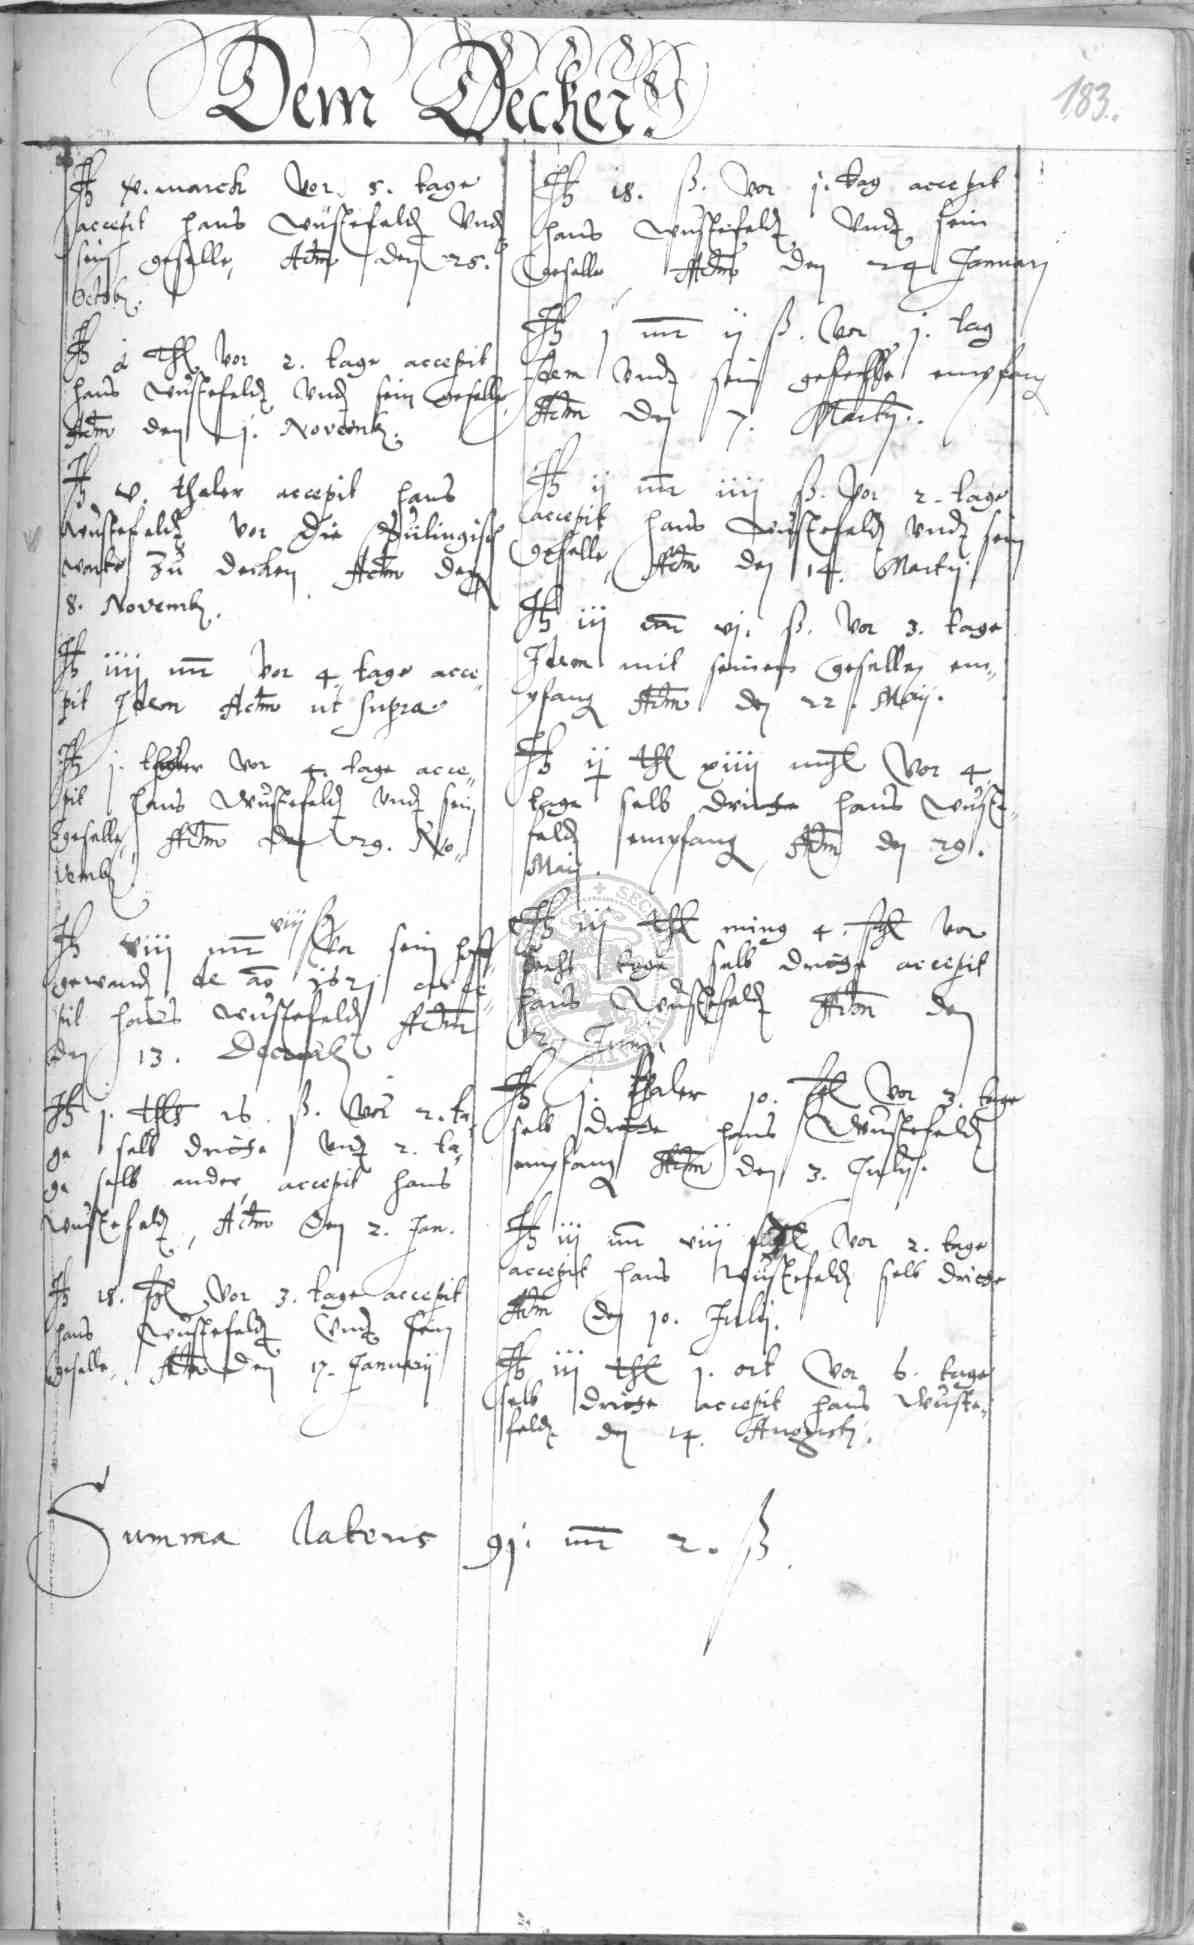 Dem Decker.
183.
It v. marck vor 5. tage
accepit hans wüstefeldt vnd
sein geselle, Actum den 25.
Octob.
It thl vor 2. tage accepit
hans wüstefeldt vnd sein geselle,
Actum den 1. Novemb.
It v. thaler accepit hans
wüstefeldt vor die
zu decken Actum den
8. Novemb.
It iiii mr vor 4. tage acce
pit Idem Actum ut supra
It j. thaler vor 4. tage acce
pit hans wüstefeldt vnd sein
geselle, Actum den 29. No
vemb.
It viii mr viii ß vor sein hoff
gewand de ao 1521 acce
pit hans wüstefeldt Actum
den 13. Decemb.
It j. thlr 16 ß. vor 2. ta
ge selb dritte vnd 2. ta
ge selb ander, accepit hans
wüstefeldt, Actum den 2. Jan.
It 18. ßl vor 3. tage accepit
hans wüstefeldt vnd sein
geselle, Actum den 17. Januarij
It 18. ß. vor j. tag accepit
hans wüstefeldt vnd sein
geselle Actum den 24 Januarij
It j mr ij ß. vor j. tag
Idem vnd sein geselle empfang
Actum den 7. Martij.
It ij mr iiii ß. vor 2. tage
accepit hans wüstefeldt vnd sein
geselle, Actum den 14. Martij
It iij mr vj. ß. vor 3. tage
Idem mit seinem gesellen em
pfang Actum den 22. Maij.
It ij thl xiiii vor 4
tage selb dritte hans wüste
feldt empfang, Actum den 29.
Maij.
It iij thl ming 4. ßl vor
acht tage selb dritte accepit
hans wüstefeldt Actum den
12. Junij.
It j. thaler 10. ßl vor 3. tage
selb dritte hans wüstefeldt
empfang Actum den 3. Julij.
It iij mr viii ßl vor 2. tage
accepit hans wüstefeldt selb dritte
Actum den 10. Julij.
It iij thl j. ort vor 6. tage
selb dritte accepit hans wüste
feldt den 14. Augusti.
Summa lateris 91. mr 2. ß.